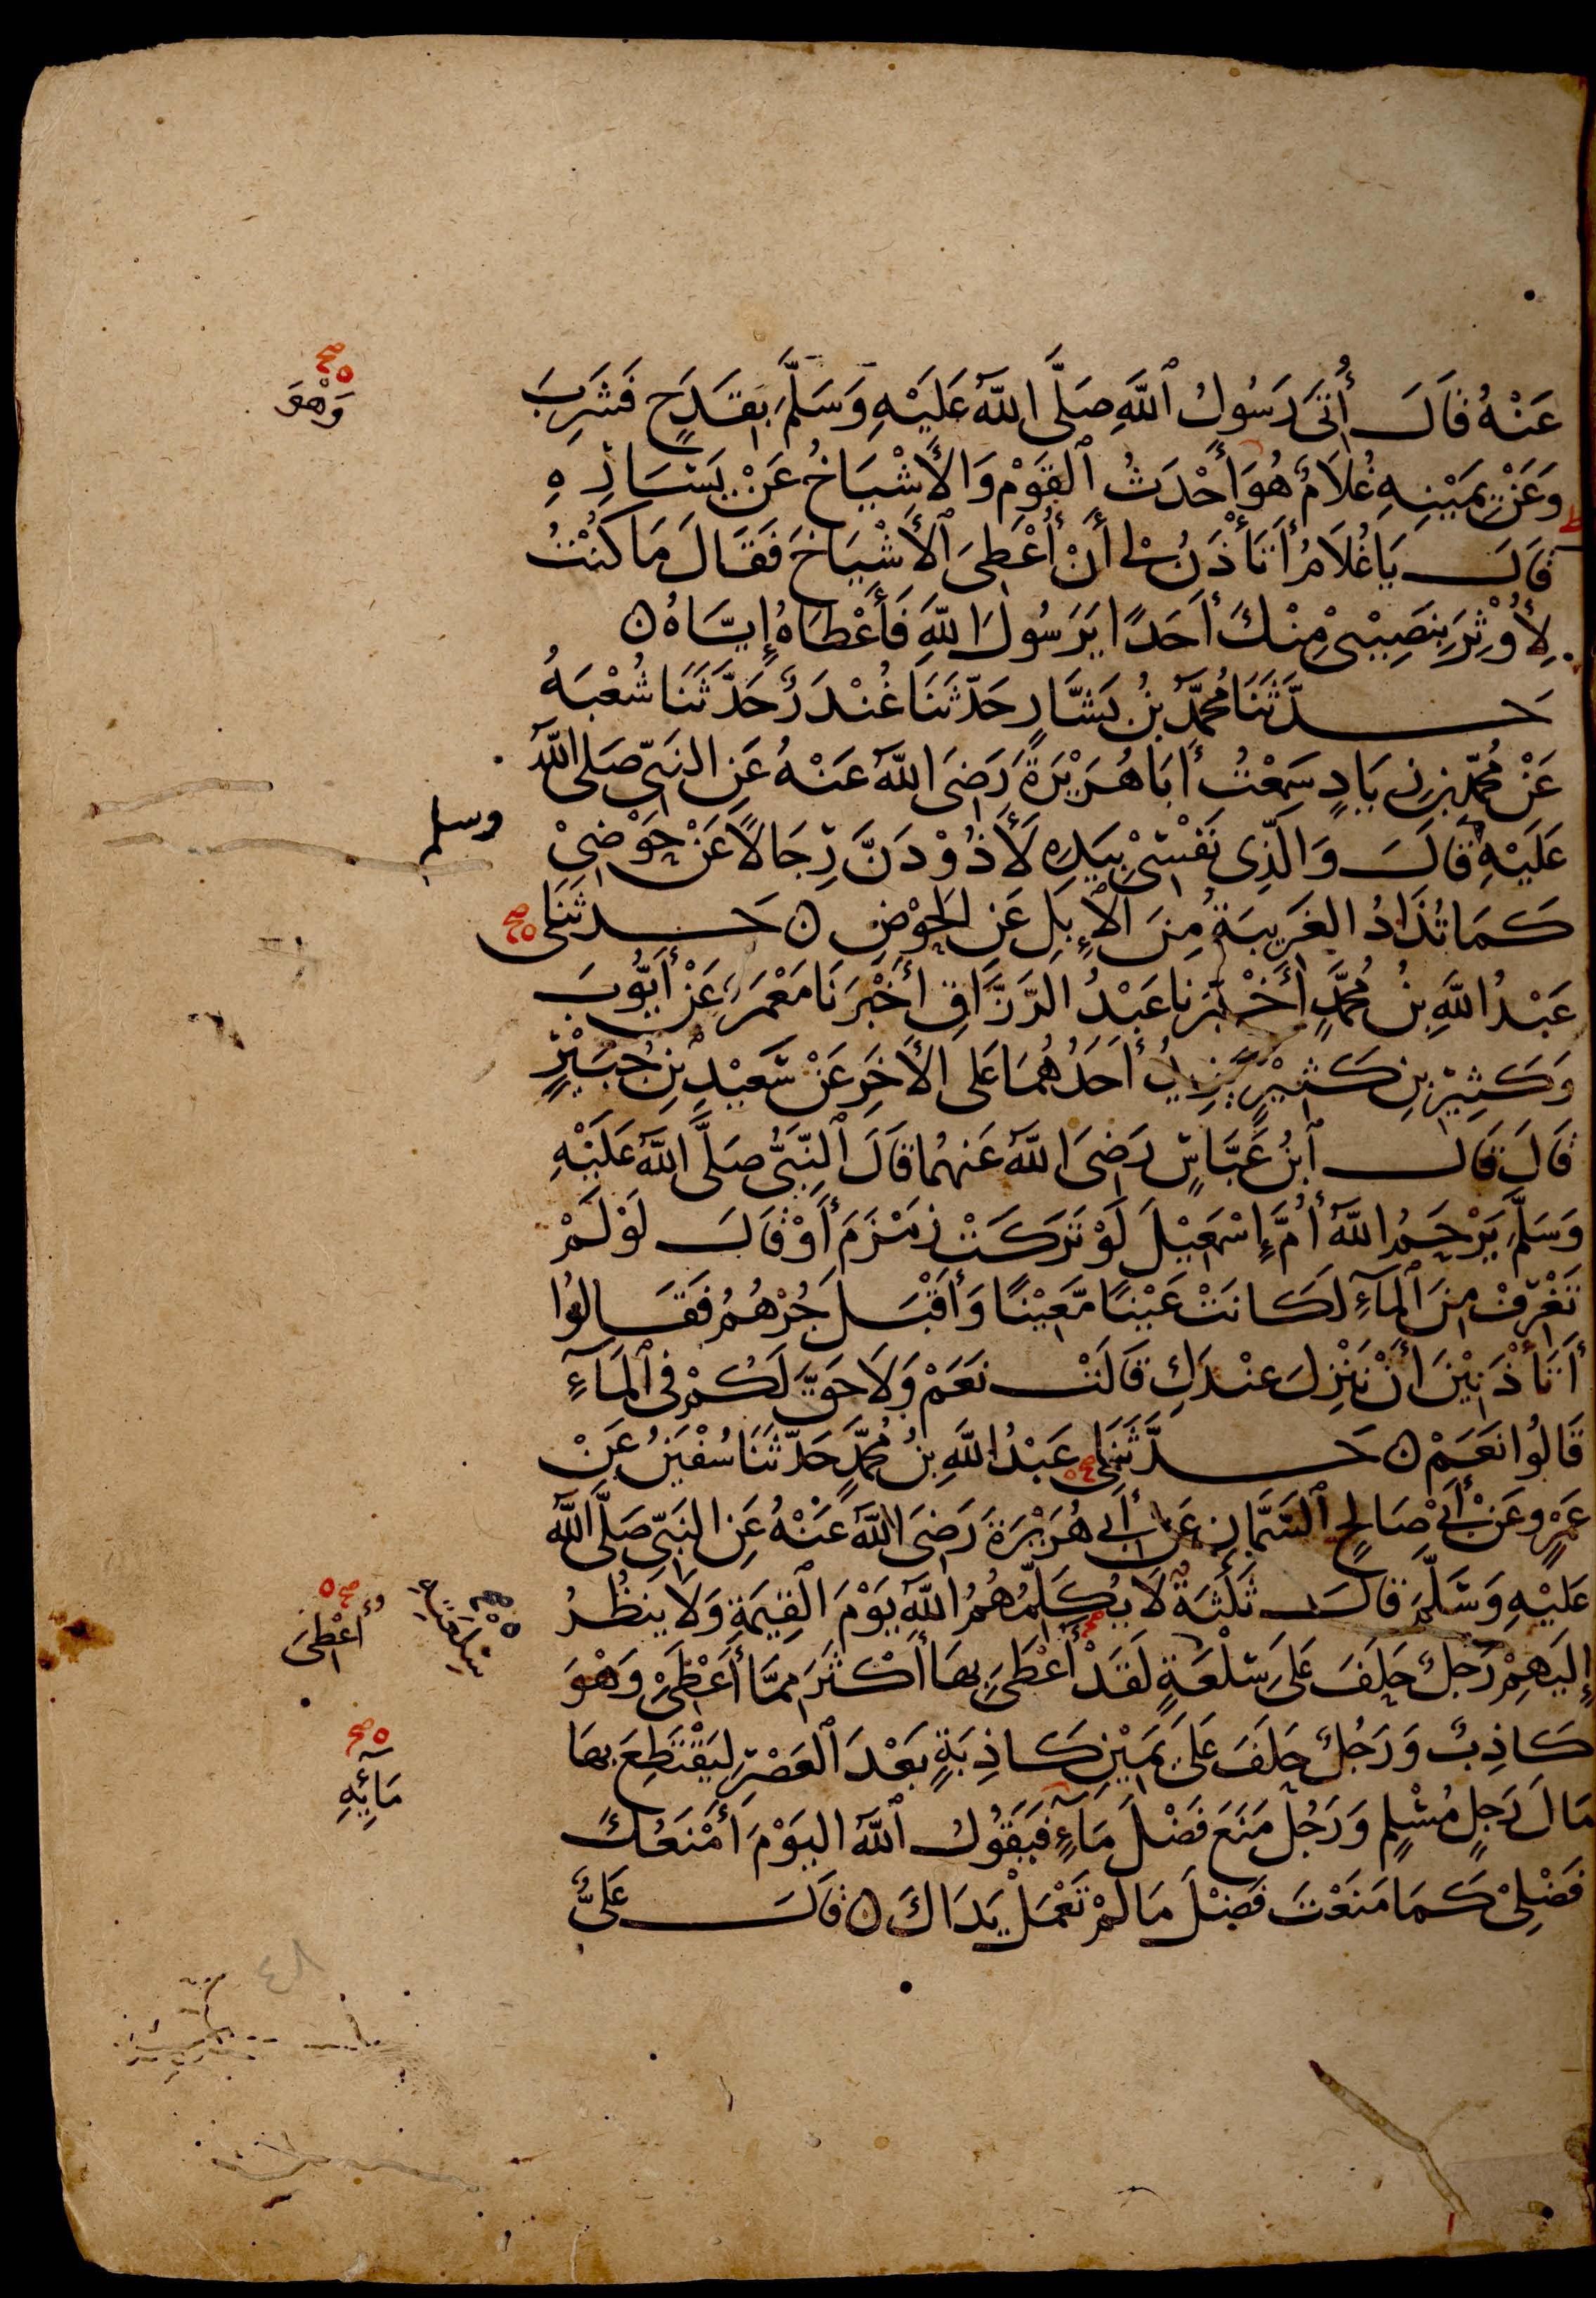 عَنْهُ قَالَ أُتِىَ رَسُولُ ٱللَّهِ صَلَّى اللَّهُ عَلَيْهِ وَسَلَّمَ بِقَدَحٍ فَشَرِبَ
وَهْوَ
وَعَنْ يَمِيْنِهِ غُلَامٌ هُوَ أَحْدَثُ ٱلْقَوْمِ وَالْأَشْيَاخُ عَنْ يَسَارِهِ
قَالَ يَا غُلَامُ أَتَأْذَنُ لِى أَنْ أُعْطِىَ ٱلْأَشْيَاخَ فَقَالَ مَا كُنْتُ
لِأُوْثِرَ بِنَصِيْبِىْ مِنْكَ أَحَدًا يَرَسُولَ اللَّهِ فَأَعْطَاهُ إِيَّاهُ ۝
حَدَّثَنَا مُحَمَّدُ بْنُ بَشَّارٍ حَدَّثَنَا غُنْدَرٌ حَدَّثَنَا شُعْبَةُ
عَنْ مُحَمَّدِ بْنِ زِيَادٍ سَمِعْتُ أَبَا هُرَيْرَةَ رَضِىَ اللَّهُ عَنْهُ عَنِ النَّبِىِّ صَلى اللَّهُ
عَلَيْهِ قَالَ وَالَّذِى نَفْسِىْ بِيَدِهِ لَأَذُوْدَنَّ رِجَالًا عَنْ حَوْضِىْ
وسلم
كَمَا تُذَادُ الْغَرِيبَةُ مِنَ الْإِبِلِ عَنِ الْحَوْضِ ۝ حَدثَنَى
عَبْدُ اللَّهِ بْنُ مُحَمَّدٍ أَخْبَرَنا عَبْدُ الرَّزَّاقِ أَخْبَرَنَا مَعْمَرٌ عَنْ أَيُّوبَ
وَكَثِيْرِ بْنِ كَثِيْرٍ يَزِيْدُ أَحَدُهُمَا عَلى الْأَخَرِ عَنْ سَعِيْدِ بْنِ جُبَيْرٍ
قَالَ قَالَ ٱبْنُ عَبَّاسٍ رَضِىَ اللَّهُ عَنهُمَا قَالَ ٱلنَّبِىُّ صَلَّى اللَّهُ عَلَيْهِ
وَسَلَّمَ يَرْحَمُ اللَّهُ أُمَّ إِسْمٰعِيْلَ لَوْ تَرَكَتْ زَمْزَمَ أَوْ قَالَ لَوْ لَمْ
تَغْرِفْ مِنَ ٱلْمَآءِ لَكَانَتْ عَيْنًا مَّعِيْنًا وَأَقْبَلَ جُرْهُمُ فَقَالُوا
أَتَأْذَنِيْنَ أَنْ نَنْزِلَ عِنْدَكِ قَالَتْ نَعَمْ وَلَا حَقَّ لَكُمْ فِى ٱلْمَآءِ
قَالُوا نَعَمْ ۝ حَدَّثَنِى عَبْدُ اللَّهِ بْنُ مُحَمَّدٍ حَدَّثَنَا سُفْيٰنُ عَنْ
عَمْرٍو عَنْ أَبِىْ صَالِحٍ ٱلسَّمَّانِ عَنْ أَبِى هُرَيْرَةَ رَضِىَ اللَّهُ عَنْهُ عَنِ النَّبِىِّ صَلَّى اللَّهُ
عَلَيْهِ وَسَلَّمَ قَالَ ثَلٰثَةٌ لَا يُكَلِّمُهُمُ اللَّهُ يَوْمَ الْقِيٰمَةِ وَلَا يَنظُرُ
إِلَيْهِمْ رَجُلٌ حَلَفَ عَلَى سِلْعَةٍ لَقَدْ أَعْطَى بِهَا أَكْثَرَ مِمَّا أَعْطَى وَهْوَ
أُعْطِىَ
كَاذِبٌ وَرَجُلٌ حَلَفَ عَلَى يَمِيْنٍ كَاذِبَةٍ بَعْدَ ٱلْعَصْرِ لِيَقْتَطِعَ بِهَا
مَالَ رَجُلٍ مُسْلِمٍ وَرَجُلٌ مَنَعَ فَضْلَ مَآءٍ فَيَقُوْلُ ٱللَّهُ الْيَوْمَ أَمْنَعُكَ
مَآئِهِ
فَضْلِىْ كَمَا مَنَعْتَ فَضْلَ مَا لَمْ تَعْمَلْ يَدَاكَ ۝ قَالَ عَلِىٌّ